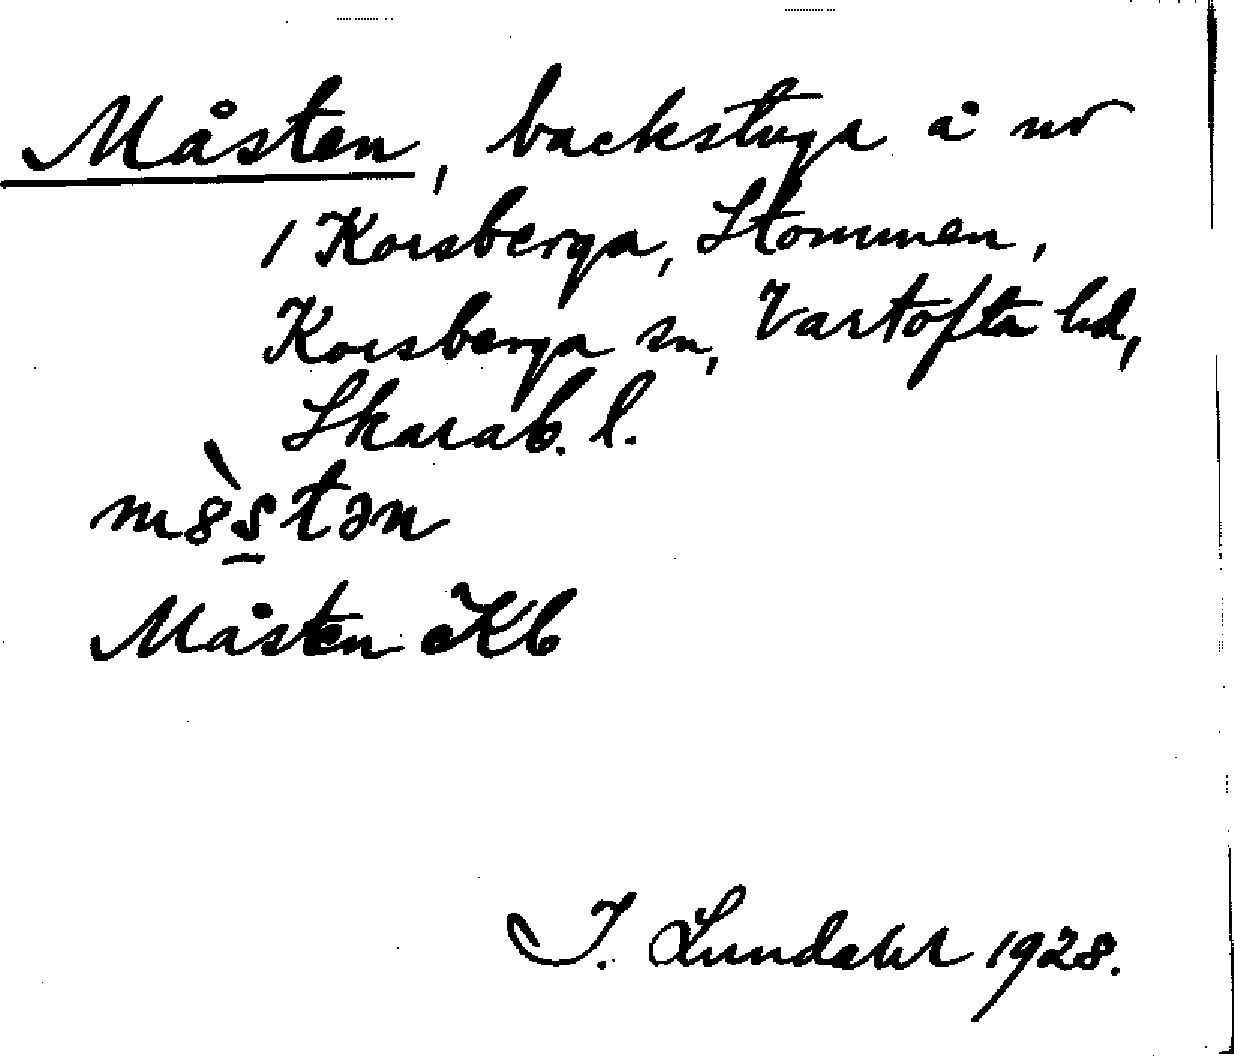 Måsten, backstuga å nr
1 Korsberga, Stommen,
Korsberga sn, Vartofta hd,
Skarab. l.
m8̀s̱tən
Måsten ÄKb
I. Lundahl 1928.